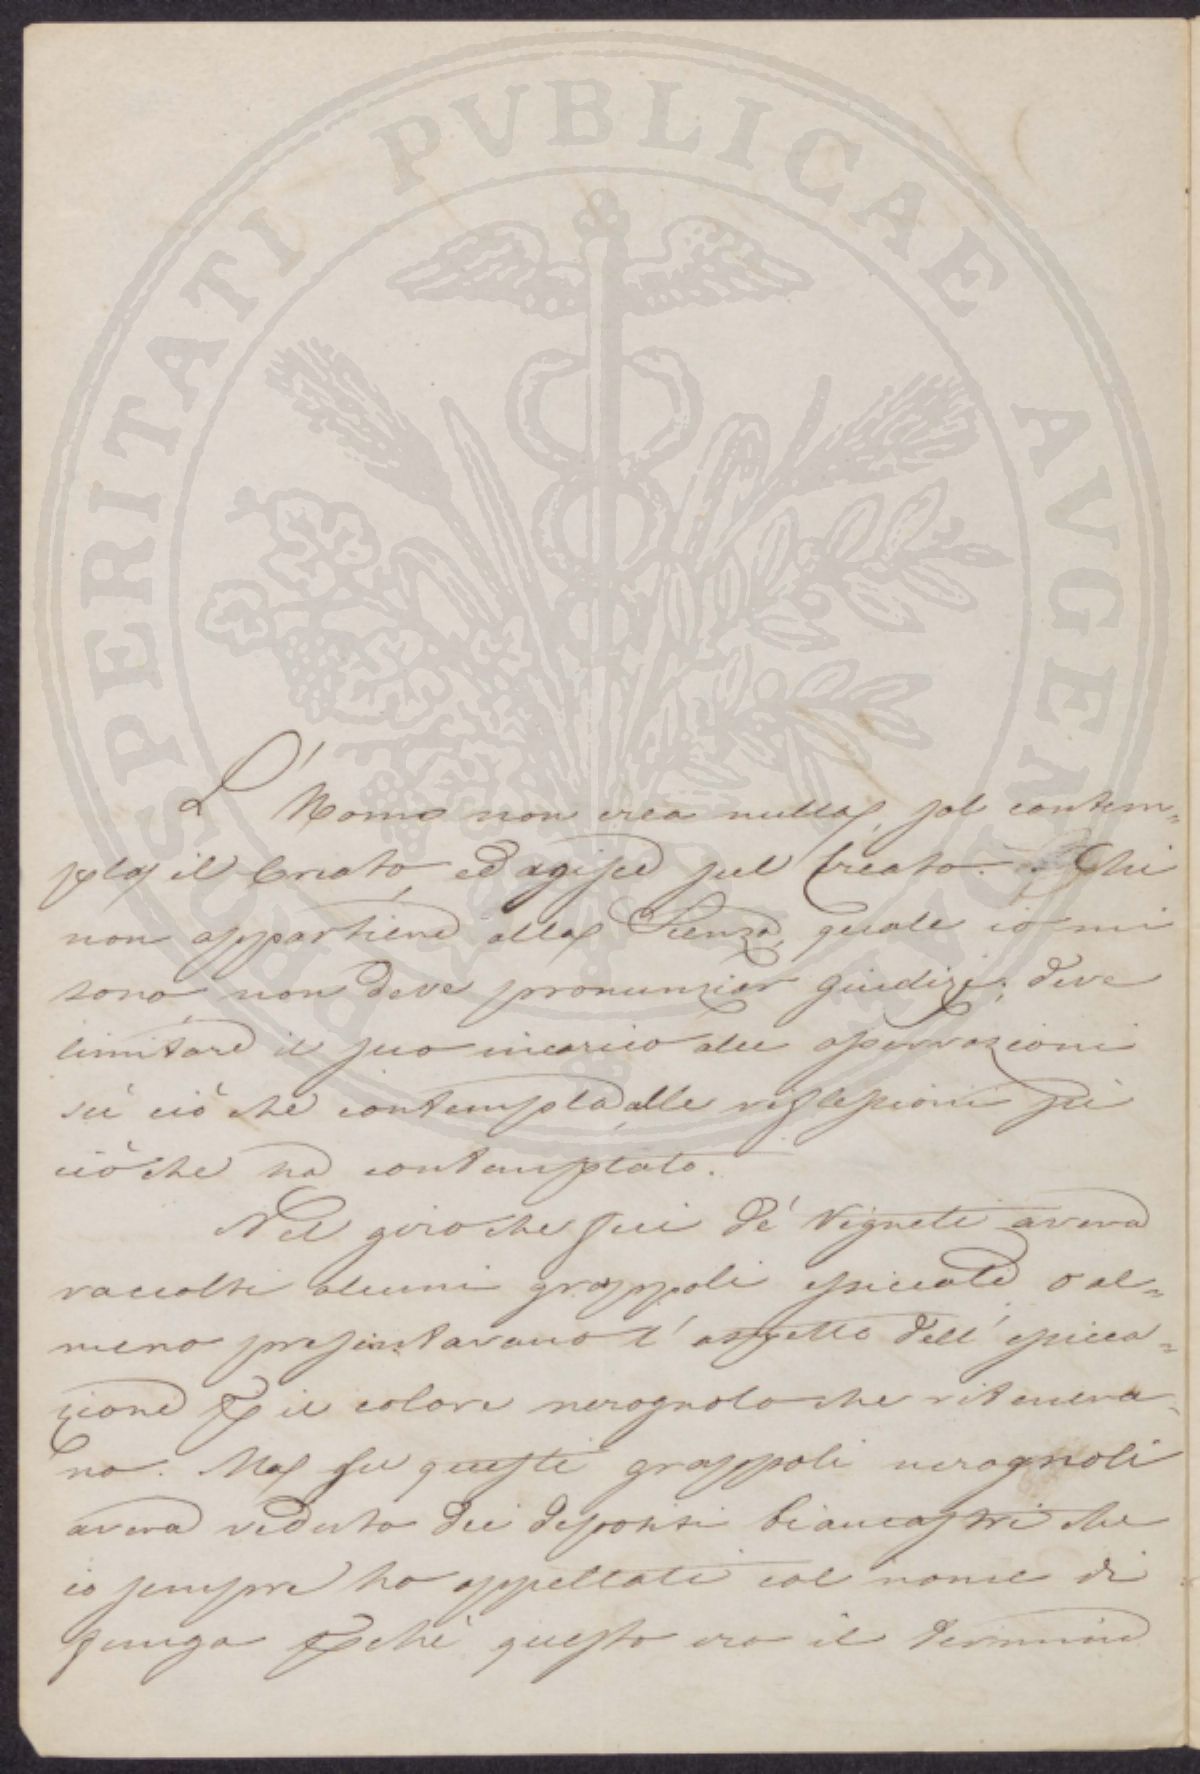 PROSPERITATI PVBLICAE AVGENDAE
L' Uomo non crea nulla, sol contem=
pla il Creato, ed agisce sul Creato. Chi
non appartiene alla Scienza, quale io mi
sono, non deve pronunziar giudizj; deve
limitare il suo incarico alle osservazioni
sù ciò che contempla, alle riflessioni sù
ciò che ha contemplato.
Nel giro che feci de' Vigneti aveva
raccolti alcuni grappoli essiccati o al=
meno presentavano l' aspetto dell' essicca=
zione p il colore nerognolo che riteneva=
no. Ma su questi grappoli nerognoli
aveva veduto dei depositi biancastri che
io sempre ho appellati col nome di
funga pchè questo era il termine